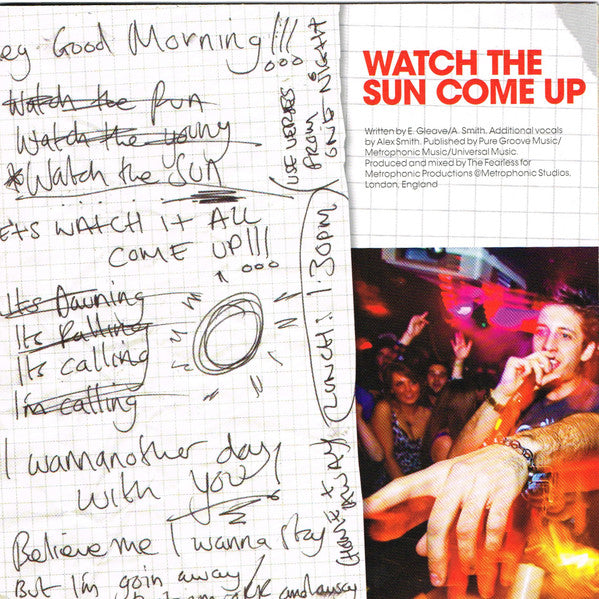 ey Good Morning!!!
Watch the Run
Watch the young
*Watch the SUN
ETS WATCH IT ALL
COME UP!!!
Its Dawning
Its Falling
Its calling
I'm calling
I wannanother day
with you!
Believe me I wanna stay
But I'm goin away
(USE VERSES
FROM
ONE NIGHT
LUNCH! 1:30PM
WATCH THE
SUN COME UP
Written by E. Gleave/A. Smith. Additional vocals
by Alex Smith. Published by Pure Groove Music/
Metrophonic Music/Universal Music.
Produced and mixed by The Fearless for
Metrophonic Productions @Metrophonic Studios,
London, England